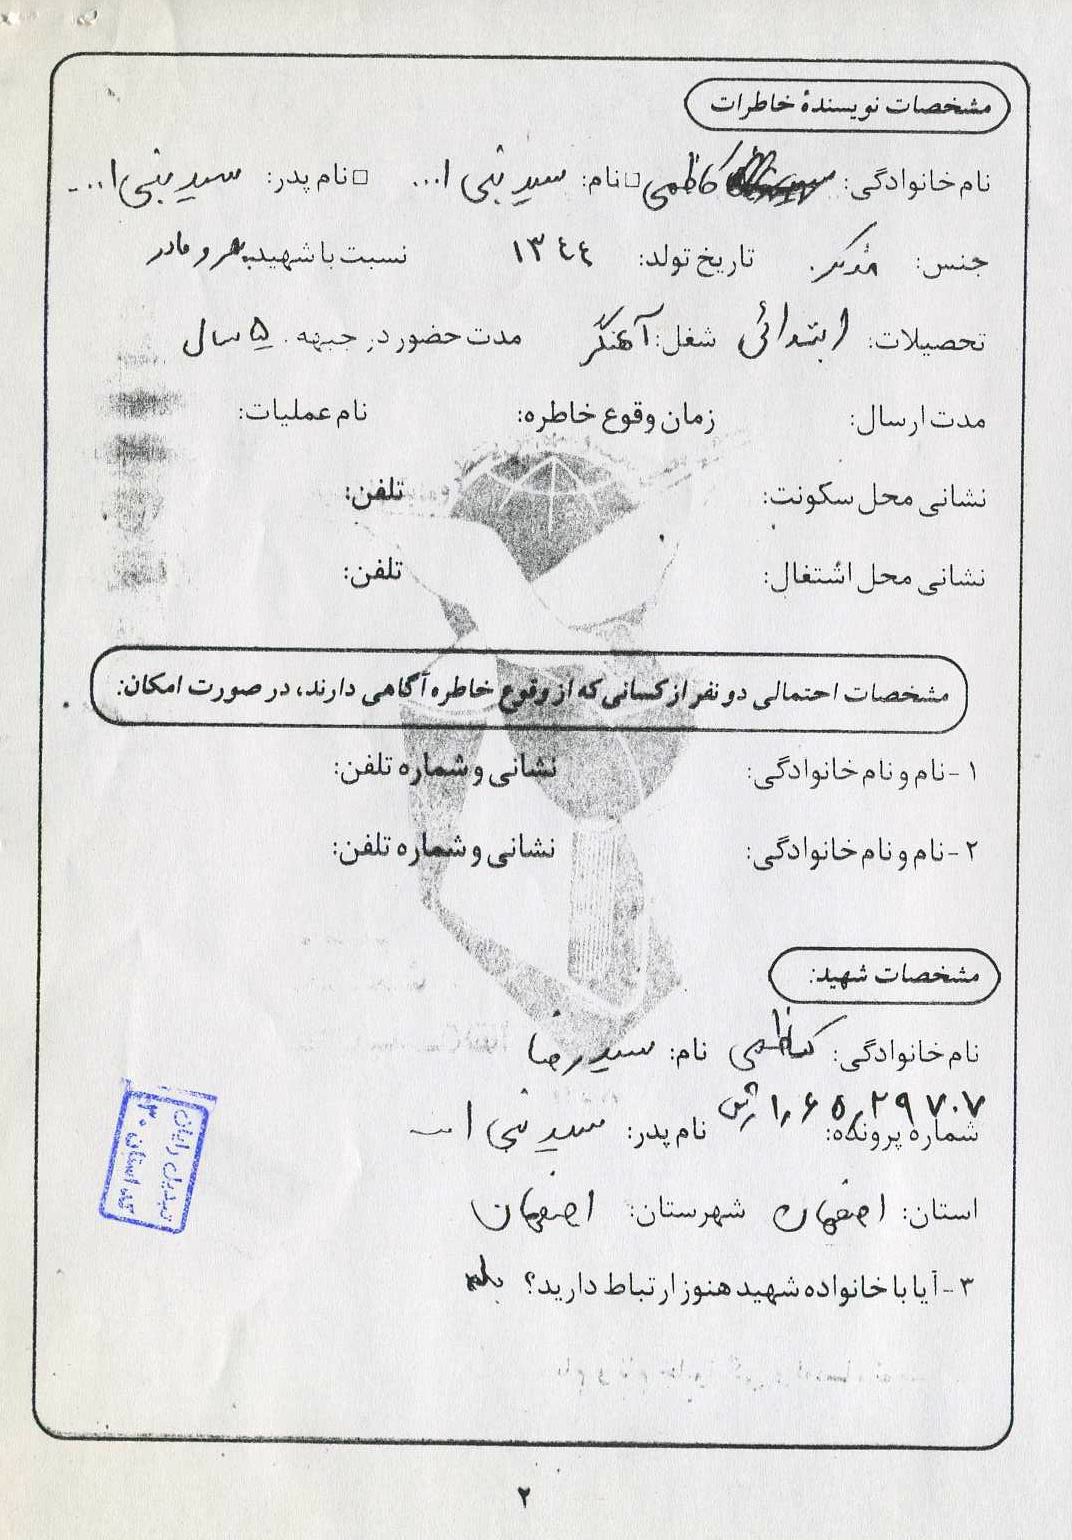 مشخصات نویسندهٔ خاطرات
نام خانوادگی: کاظمی □ نام: سید نبی ا... □ نام پدر: سید نبی ا...
جنس: مذکر تاریخ تولد: ۱۳۴۴ نسبت با شهید: پدر و مادر
تحصیلات: ابتدائی شغل: آهنگر مدت حضور در جبهه: ۵ سال
مدت ارسال: زمان وقوع خاطره: نام عملیات:
نشانی محل سکونت: تلفن:
نشانی محل اشتغال: تلفن:
مشخصات احتمالی دو نفر از کسانی که از وقوع خاطره آگاهی دارند، در صورت امکان:
۱- نام و نام خانوادگی: نشانی و شماره تلفن:
۲- نام و نام خانوادگی: نشانی و شماره تلفن:
مشخصات شهید:
نام خانوادگی: کاظمی نام: سید رضا
شماره پرونده: ۶۵٫۲۹۷۰۷ نام پدر: سید نبی ا...
استان: اصفهان شهرستان: اصفهان
۳- آیا با خانواده شهید هنوز ارتباط دارید؟ بله
تبدیل رایان
کد استان ۳۰
۲